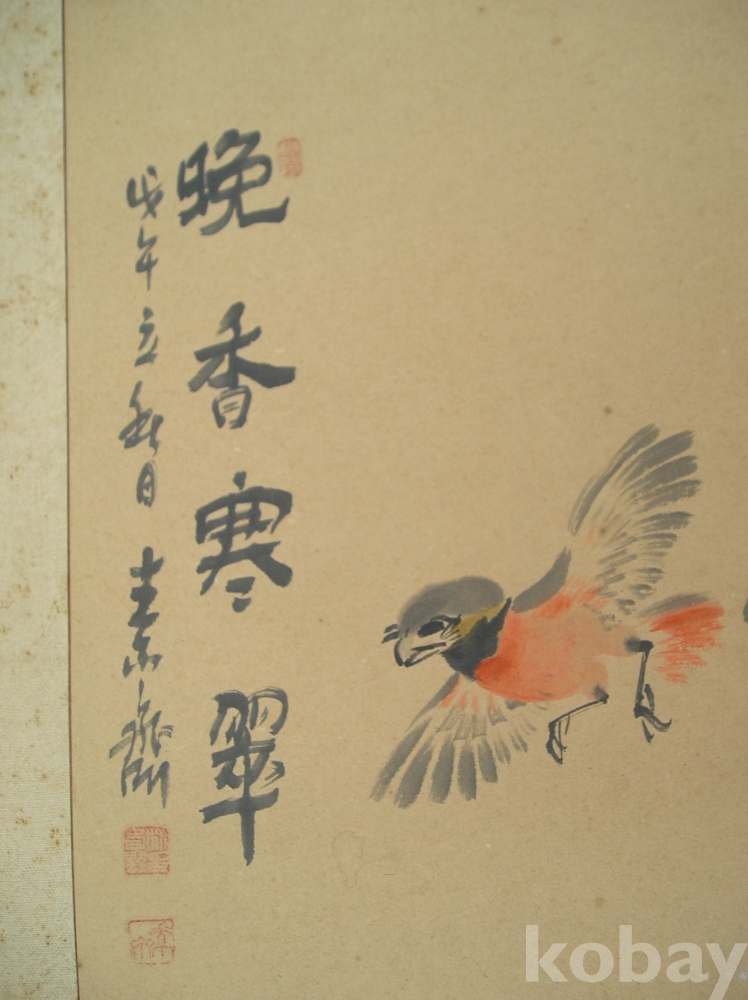 晩香寒翠
戊午立秋日 素齋
kobay